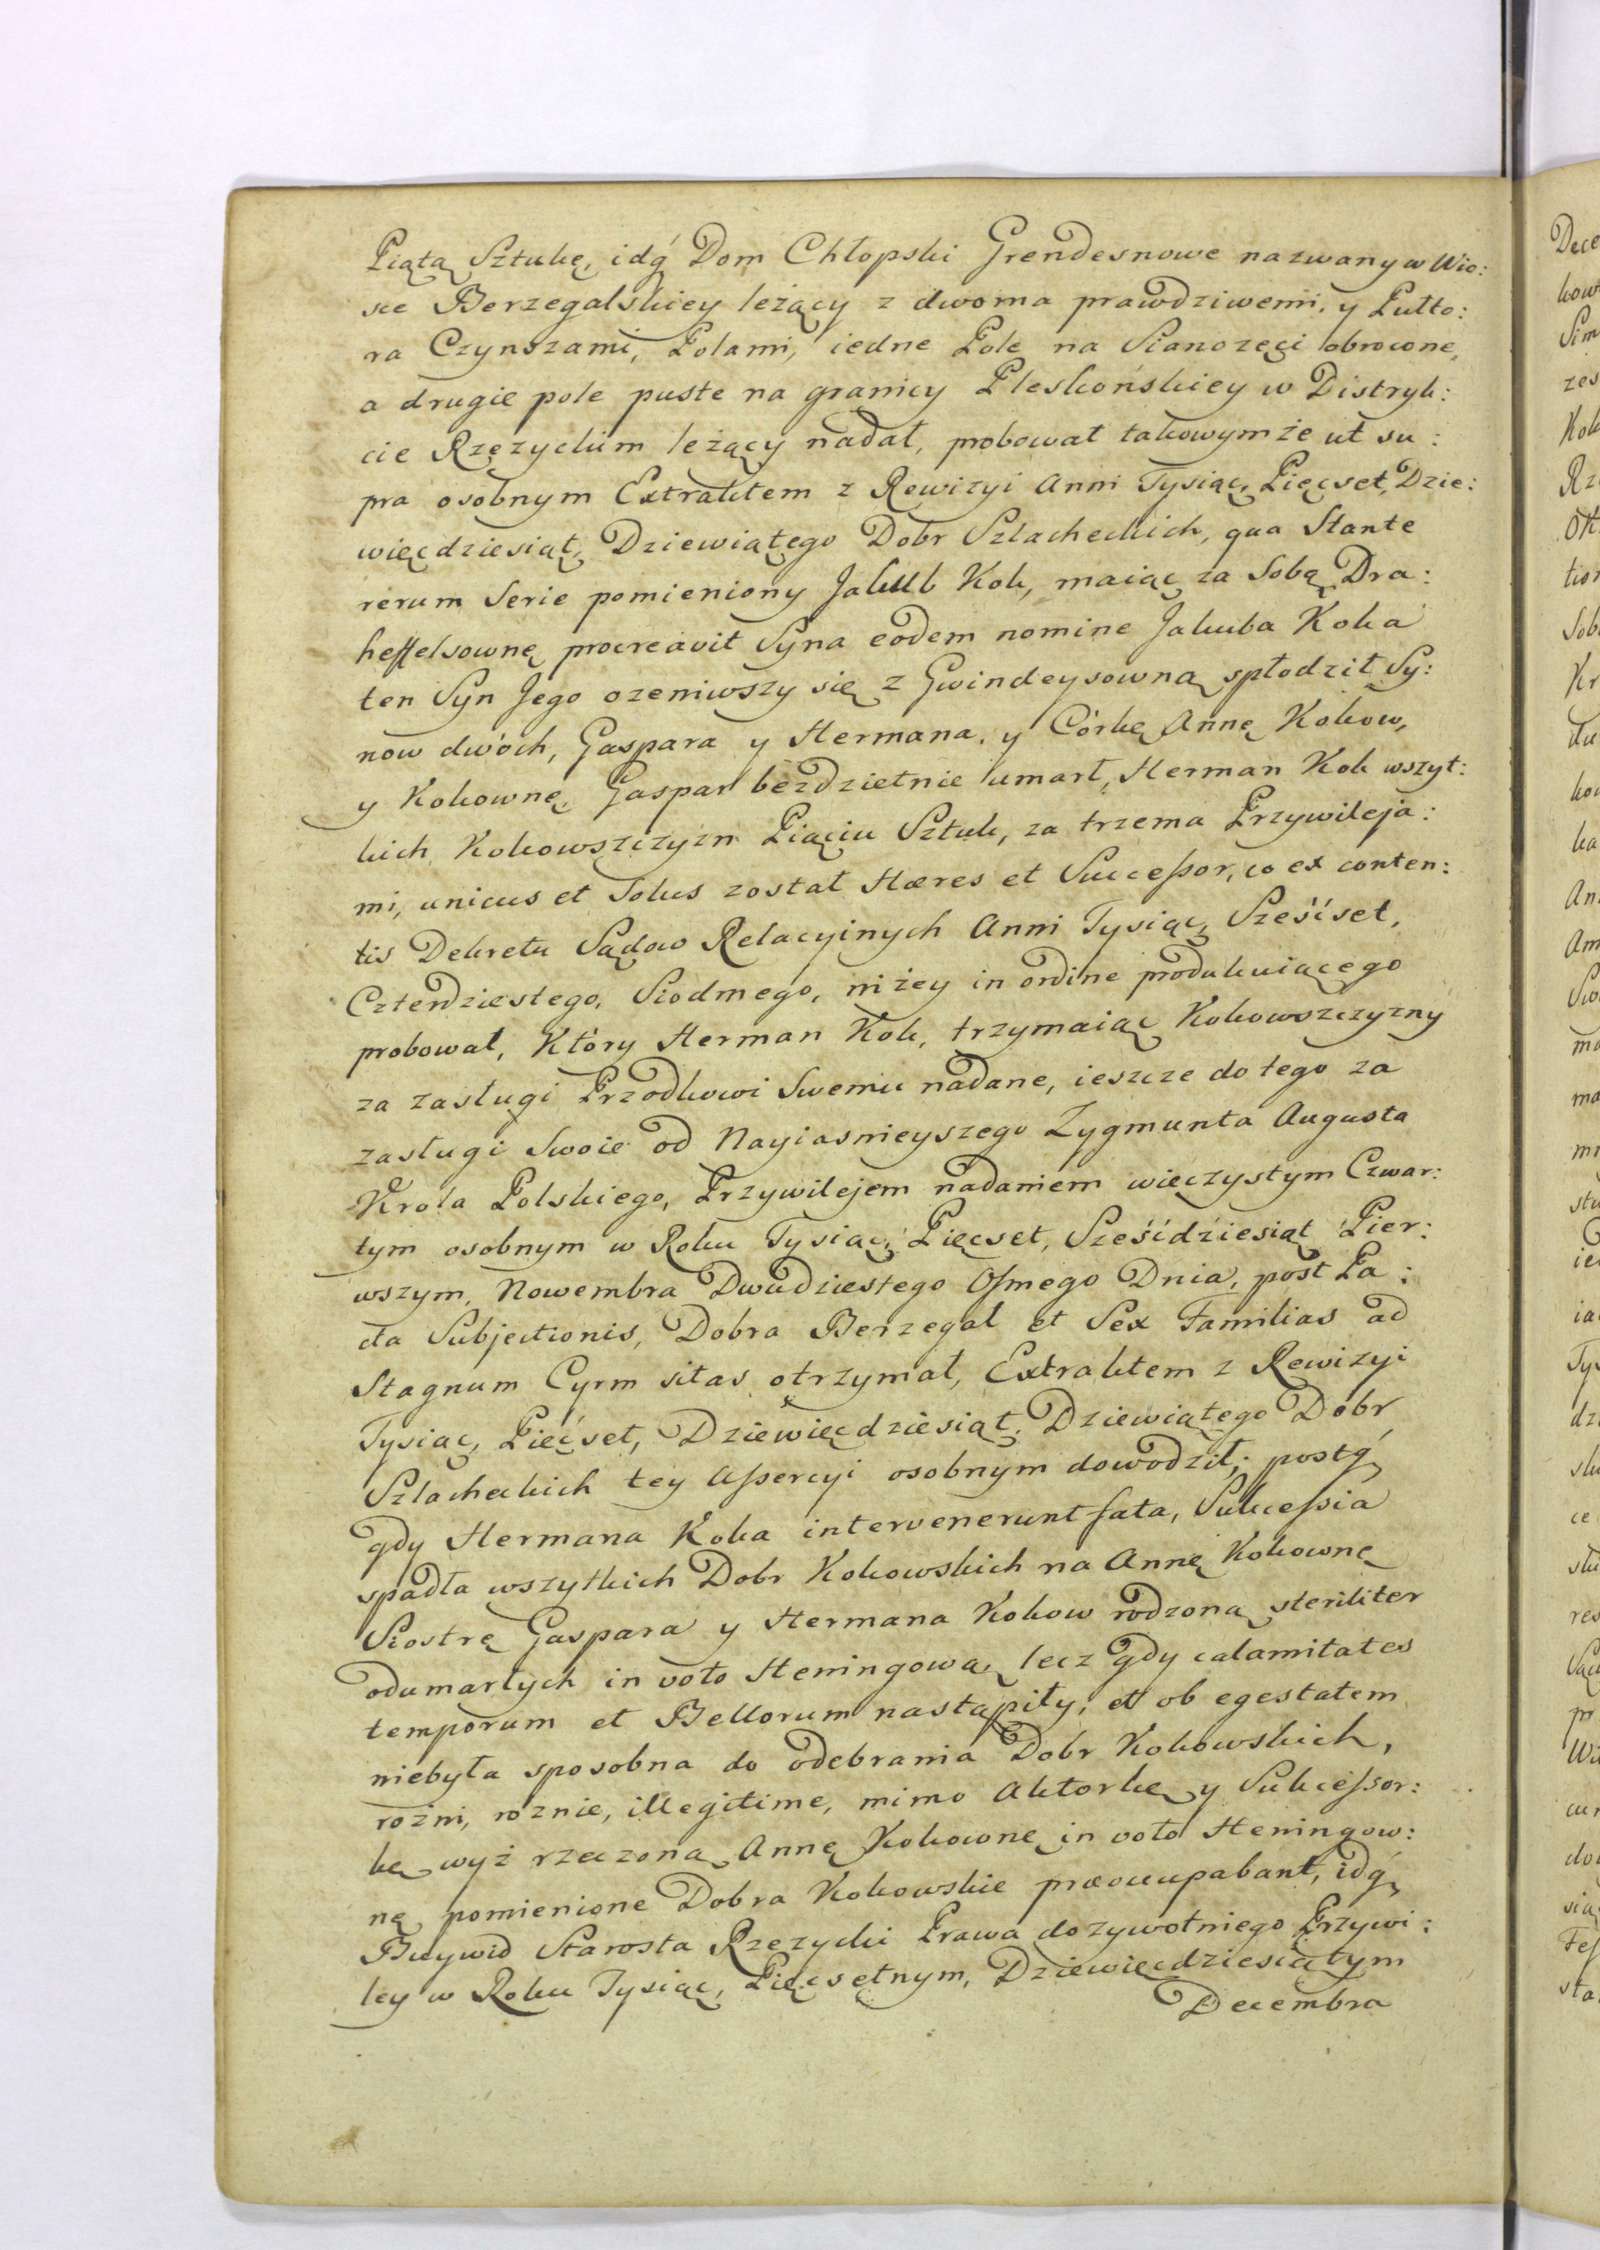 Piątą Sztukę, idq́ Dom Chłopski Grendesnowe nazwany w Wio:
sce Berzegalskiey leżący z dwoma prawdziwemi, y Pułto:
ra Czynszami, Polami, iedne Pole na Sianożęci obrocone,
a drugie pole puste na granicy Pleskońskiey w Distryk:
cie Rzeżyckim leżący nadał, probował takowymże ut su:
pra osobnym Extraktem z Rewizyi Anni Tysiąc, Pięcset, Dzie:
więcdziesiąt, Dziewiątego Dobr Szlacheckich, qua Stante
rerum Serie pomieniony Jakub Kok, maiąc za Sobą Dra:
heffelsownę procreavit Syna eodem nomine Jakuba Koka
ten Syn Jego ozeniwszy się z Gwindeysowną spłodził Sy:
now dwóch, Gaspara y Hermana, y Córkę Annę Kokow,
y Kokownę, Gaspar bezdzietnie umarł, Herman Kok wszyt:
kich Kokowszczyzn Piąciu Sztuk, za trzema Przywileja:
mi, unicus et Solus został Hæres et Successor, co ex conten:
tis Dekretu Sądow Relacyinych Anni Tysiąc, Sześćset,
Czterdziestego, Siodmego, niżey in ordine produkuiącego
probował, Który Herman Kok, trzymaiąc Kokowszczyzny
za zasługi Przodkowi Swemu nadane, ieszcze do tego za
zasługi Swoie od Nayiasnieyszego Zygmunta Augusta
Krola Polskiego, Przywilejem nadaniem wieczystym Czwar:
tym osobnym w Roku Tysiąc, Pięcset, Sześćdziesiąt Pier:
wszym, Nowembra Dwudziestego Osmego Dnia, post Pa:
cta Subjectionis, Dobra Berzegal et Sex Familias ad
Stagnum Cyrm sitas otrzymał, Extraktem z Rewizyi
Tysiąc, Pięćset, Dziewięcdziesiąt, Dziewiątego Dobr
Szlacheckich tey Assercyi osobnym dowodził; postq́
gdy Hermana Koka intervenerunt fata, Sukcessia
spadła wszytkich Dobr Kokowskich na Annę Kokownę
Siostrę Gaspara y Hermana Kokow rodzoną steriliter
odumarłych in voto Heningową, lecz gdy calamitates
temporum et Bellorum nastąpiły, et ob egestatem
niebyła sposobna do odebrania Dóbr Kokowskich,
rożni, roznie, illegitime, mimo Aktorkę y Sukcessor:
kę wyż rzeczoną Annę Kokownę in voto Heningow:
nę pomienione Dobra Kokowskie præoccupabant, idq́
Buywid Starosta Rzezycki Prawa dożywotniego Przywi:
ley w Roku Tysiąc, Pięcsetnym, Dziewięcdziesiątym
Decembra